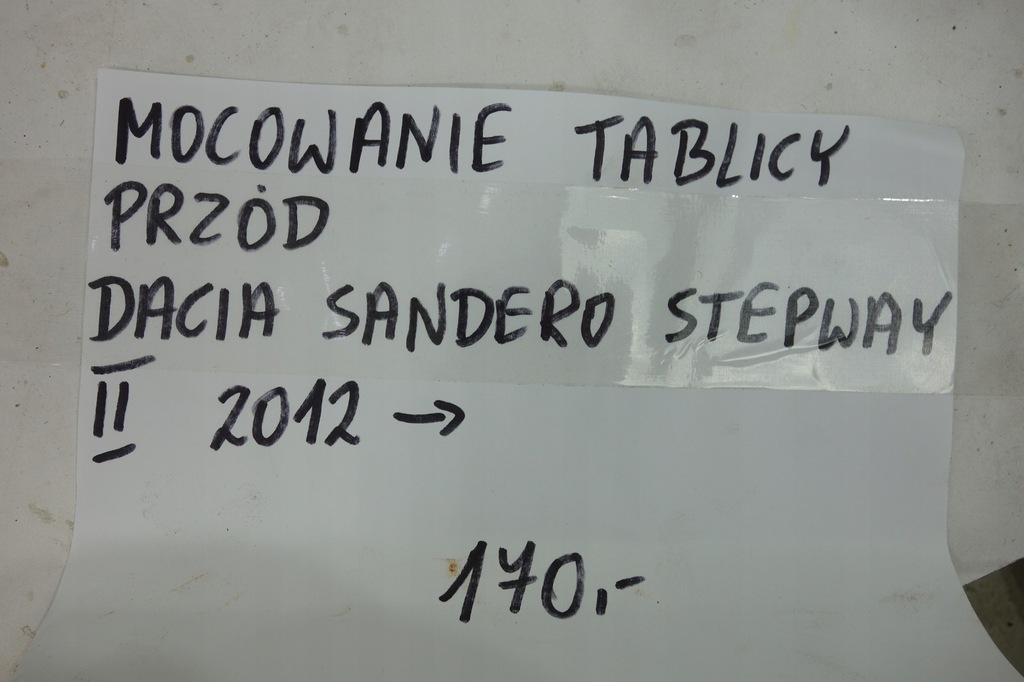 MOCOWANIE TABLICY
PRZÓD
DACIA SANDERO STEPWAY
II 2012 →
170,-